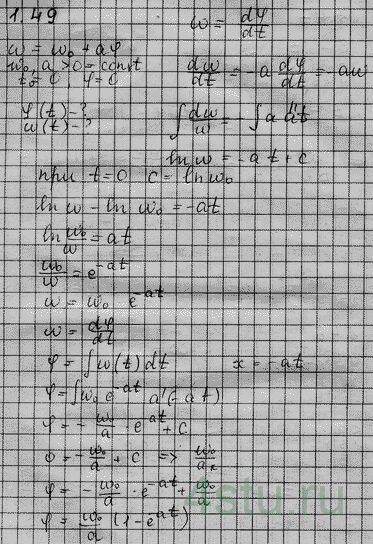 1.49
ω = dφ/dt
ω = ω₀ + aφ
ω₀, a > 0 = const
t₀ = 0, φ = 0
dω/dt = -a dφ/dt = -aω
φ(t) - ?
ω(t) - ?
∫ dω/ω = - ∫ a dt
ln ω = -a t + c
при t = 0 c = ln ω₀
ln ω - ln ω₀ = -at
ln ω₀/ω = at
ω₀/ω = e^(-at)
ω = ω₀ e^(-at)
ω = dφ/dt
φ = ∫ ω(t) dt x = -at
φ = ∫ ω₀ e^(-at) a'(-at)
φ = - ω₀/a · e^(-at) + c
0 = - ω₀/a + c => ω₀/a
φ = - ω₀/a · e^(-at) + ω₀/a
φ = ω₀/a (1 - e^(-at))
4stu.ru